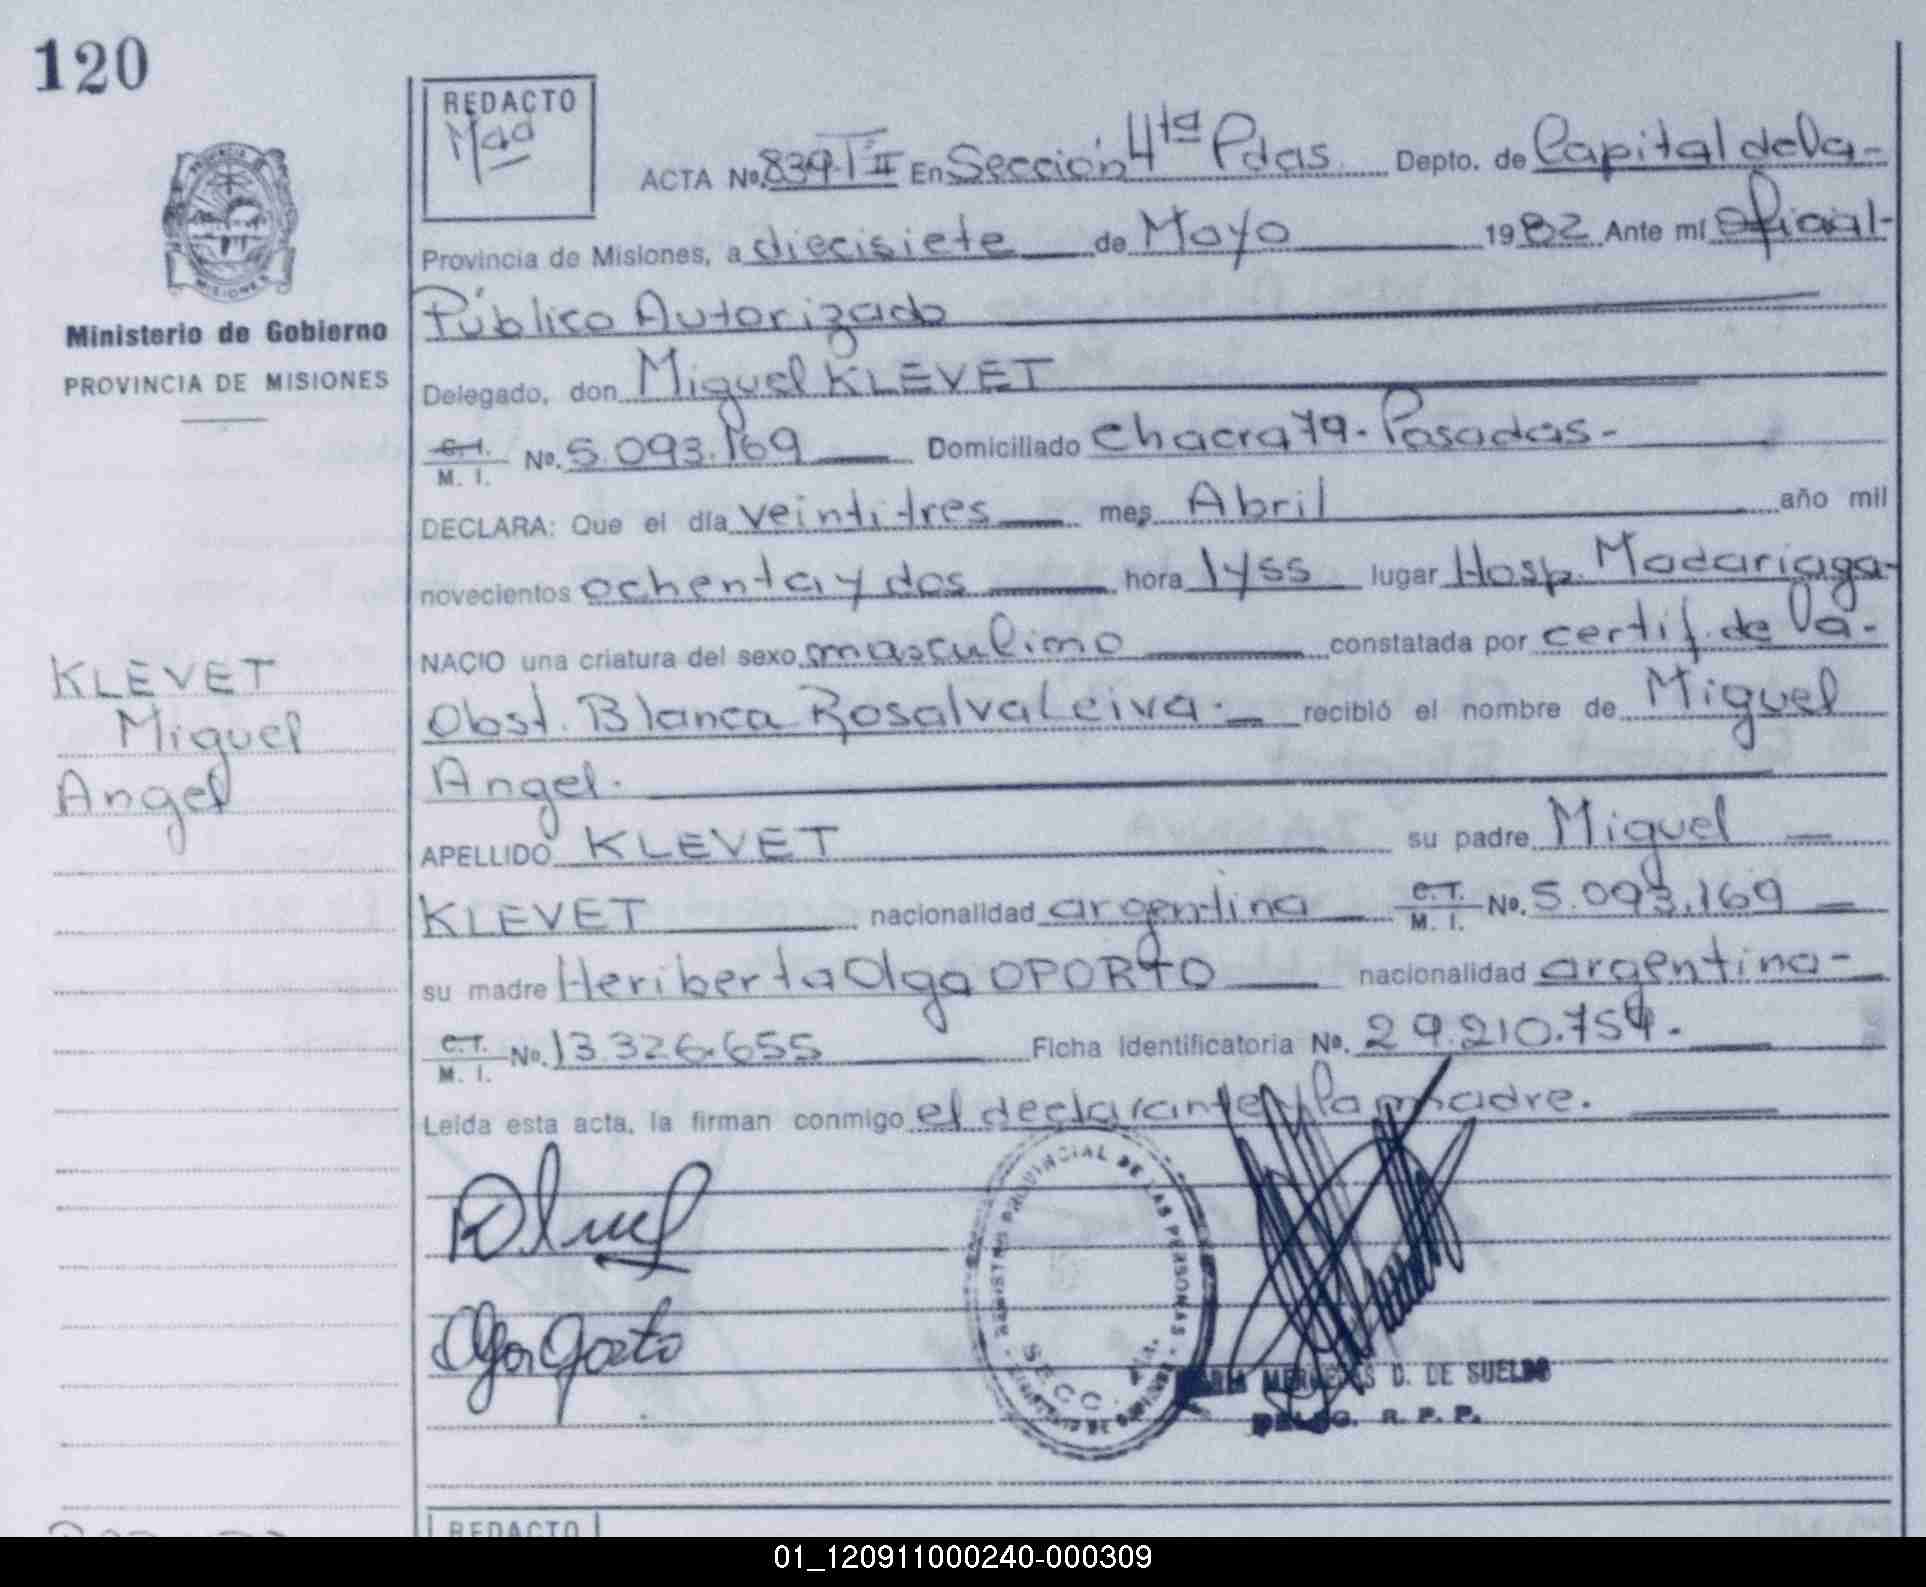 120
REDACTO
Mad
ACTA Nº 839-TºII En Sección 4ta Pdas. Depto. de Capital de la-
PROVINCIA DE
MISIONES
Provincia de Misiones, a diecisiete de Mayo 1982 Ante mí Oficial-
Público Autorizado
Ministerio de Gobierno
PROVINCIA DE MISIONES
Delegado, don Miguel KLEVET
C.I. M. I. Nº. 5.093.169 Domiciliado Chacra 79- Posadas-
DECLARA: Que el día veintitres mes Abril año mil
novecientos ochenta y dos hora 1y55 lugar Hosp. Madariaga-
NACIO una criatura del sexo masculino constatada por certif. de la-
Obst. Blanca Rosalva Leiva. recibió el nombre de Miguel
Angel.
KLEVET
Miguel
Angel
APELLIDO KLEVET su padre Miguel
KLEVET nacionalidad argentina C.I. M. I. Nº. 5.093.169
su madre Heriberta Olga OPORTO nacionalidad argentina-
C.I. M. I. Nº. 13.326.655 Ficha Identificatoria Nº. 29.210.754.
Leída esta acta, la firman conmigo el declarante y la madre.
REGISTRO PROVINCIAL DE LAS PERSONAS
SECC. 4ta.
MERCEDES D. DE SUELDO
DELEG. R. P. P.
REDACTO
01_120911000240-000309